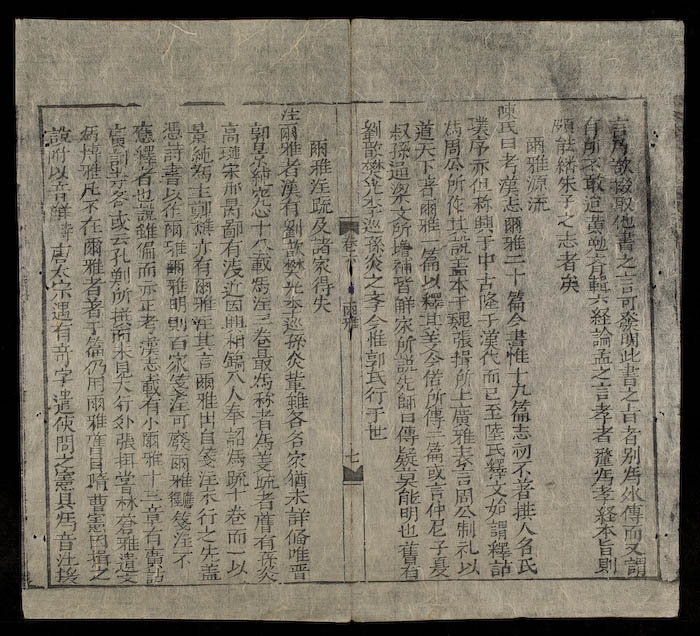 言乃欲掇取他書之言可發明此書之旨者別爲外傳而又謂
有所不敢這黃勉齋輯六経論孟之言孝者爲孝経本旨則
頗諸朱子之志者矣
爾雅源流
陳氏曰考漢志爾雅二十篇今書惟十九篇志初不著撰人名氏
璞序亦但称興于中古隆于漢代而已至陸氏釋文始謂釋詁
爲周公所作其說盖本于魏張揖所上廣雅表言周公制礼以
道天下著爾雅一篇以釋其義今俗所傳三篇或言仲尼子夏
叔孫通梁文所增補皆解家所說先師口傳疑莫能明也舊有
劉歆樊光李巡孫炎之學今惟郭氏行于世
卷 爾雅 七
爾雅注疏及諸家得失
注爾雅者漢有劉歆樊光李巡孫炎輩雖各名家猶未詳俻唯晋
郭景純究心十八載爲注三卷最爲称者爲義疏者有孫炎
高璉宋邢昺鄙有淺近因與相錦八人奉詔爲疏十卷而一以
景純爲主鄭樵亦有爾雅注其言爾雅出自箋注未行之先盖
憑詩書以作爾雅爾雅明則百家箋注可廢爾雅箋注不
應釋者也說雖偏而亦正考漢志載有小爾雅十三章有廣詁
廣訓等名或云孔鮒所撰而未見大行外張揖甞林蒼雅遺文
爲博雅凡不在爾雅者著于篇仍用爾雅名目隋曺憲因揖之
說附以音解唐太宗遇有竒字遣使問之憲具爲音注援